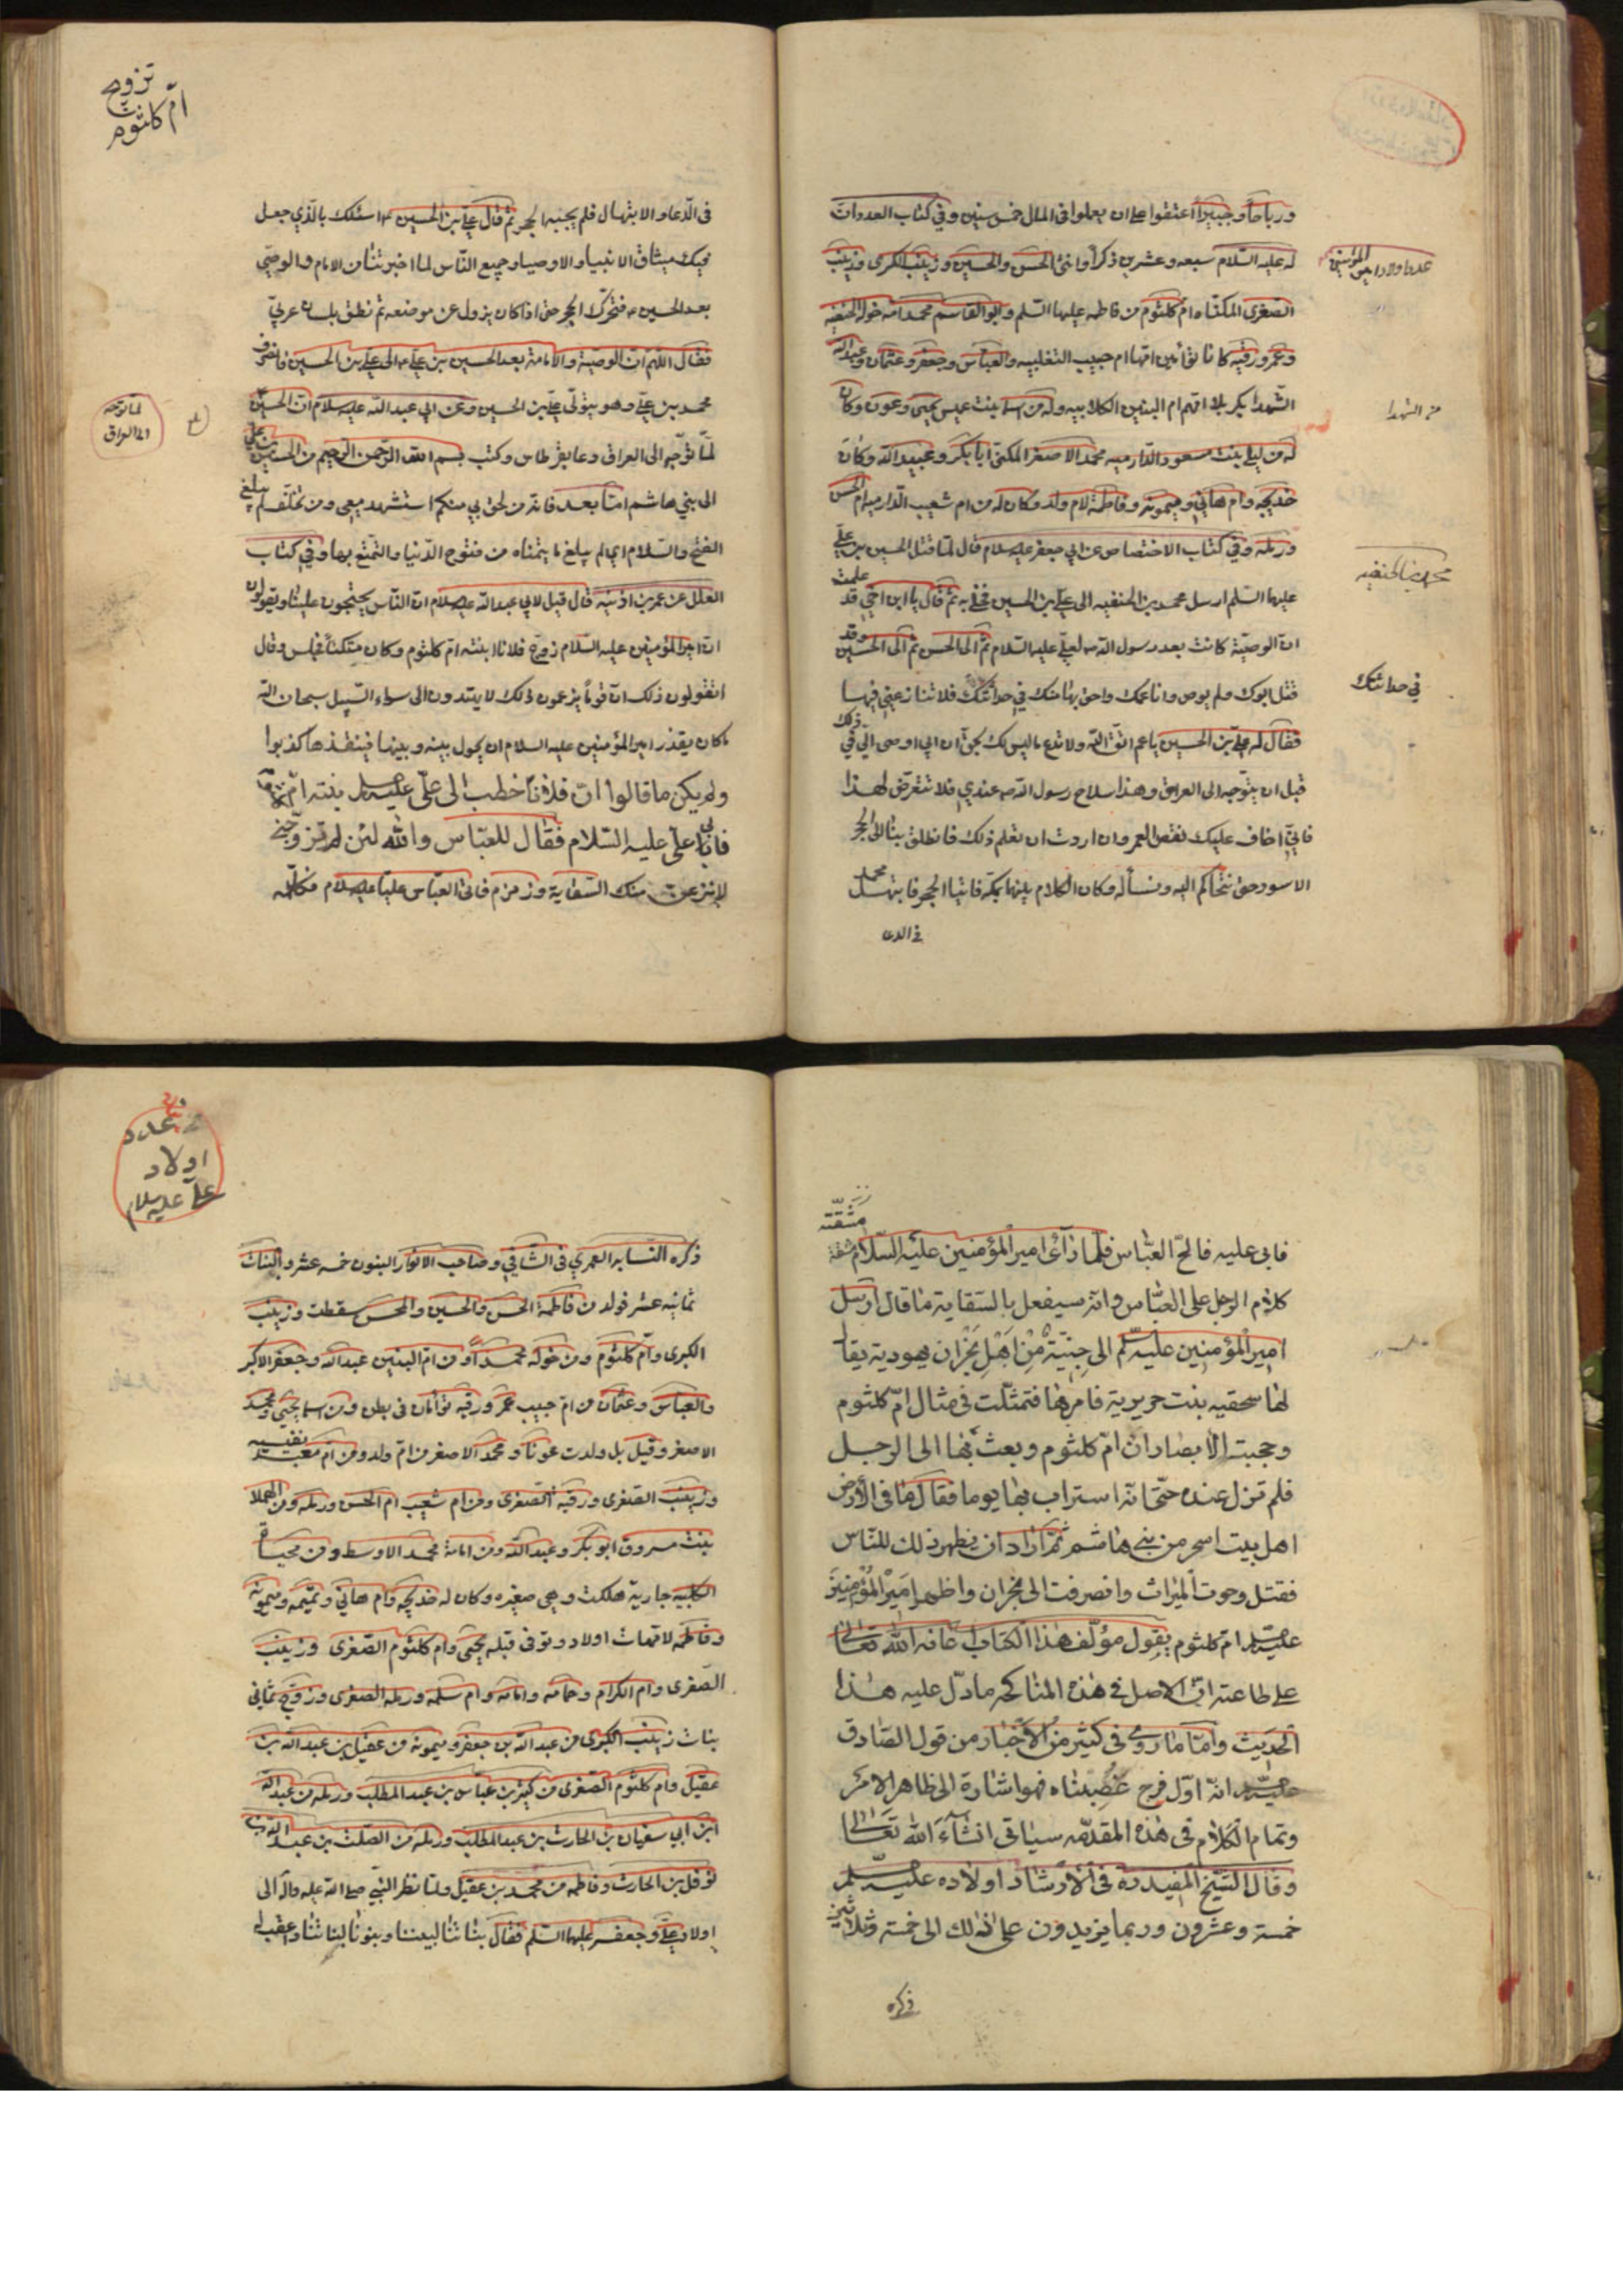 ورباحاً وجبيراً اعتقوا على ان يعملوا في المال خمس سنين وفي كتاب العدد ان
له عليه السّلام سبعه وعشرين ذكراً وانثى الحسن والحسين وزينب الكبرى وزينب
عدد اولاد امير المؤمنين
الصغرى المكنّاه ام كلثوم من فاطمه عليها السّلم وابو القاسم محمد امّه خوله الحنفيه
وعمر ورقيه كانا توأمين امّها ام حبيب التغلبيه والعبّاس وجعفر وعثمان وعبدالله
الشّهداء بكربلا امّهم ام البنين الكلابيه وله من اسما بنت عميس يحيى وعون وكان
من الشهدا
له من ليلى بنت مسعود الدّارميه محمد الاصغر المكنى ابا بكر وعبيد الله وكان
خديجه وام هاني وميمونه وفاطمة لام ولد وكان له من ام شعيب الدّارميه ام الحسن
ورمله وفي كتاب الاختصاص عن ابي جعفر عليه سلام قال لمّا قتل الحسين بن علي
محمد بن الحنفيه
عليها السّلم ارسل محمد بن الحنفيه الى علي بن الحسين فخلى به ثم قال يا ابن اخي قد علمت
ان الوصيّة كانت بعد رسول الله ص لعلي عليه السّلام ثم الى الحسن ثم الى الحسين وقد
قتل ابوك ولم يوص وانا عمك واحق بها منك في حداثتك فلا تنازعني فيها
في حداثتك
فقال له علي بن الحسين يا عم اتق الله ولا تدع ما ليس لك بحق ان ابي اوصى اليّ في ذلك
قبل ان يتوّجه الى العراق وهذا سلاح رسول الله ص عندي فلا تتعرّض لهذا
فانّي اخاف عليك نقص العمر وان اردت ان تعلم ذلك فانطلق بنا الى الحجر
الاسود حتى نتحاكم اليه ونسأله وكان الكلام بينهما بمكه فاتيا الحجر فابتهل محمد
في الدعا
تزوج
امّ كلثوم
في الدّعاء والابتهال فلم يجبه الحجر ثم قال علي بن الحسين ع اسئلك بالّذي جعل
فيك ميثاق الانبياء والاوصياء وجميع النّاس لما اخبرتنا من الامام والوصيّ
بعد الحسين ع فتحرّك الحجر حتى اذا كان يزول عن موضعه ثم نطق بلسان عربيّ
فقال اللهم ان الوصيّة والامامة بعد الحسين بن علي ع الى علي بن الحسين فانصرف
محمد بن علي وهو يتولّى علي بن الحسين وعن ابي عبد الله عليه سلام ان الحسين
لما توجه
الى العراق
لمّا توّجه الى العراق دعا بقرطاس وكتب بسم الله الرّحمن الرّحيم من الحسين بن علي
الى بني هاشم امّا بعد فانّه من لحق بي منكم استشهد معي ومن تخلّف لم يبلغ
الفتح والسّلام اي لم يبلغ ما يتمناه من فتوح الدّنيا والتّمتع بها وفي كتاب
العلل عن عمر بن اذنيه قال قيل لابي عبد الله عليه سلام ان النّاس يحتجون علينا ويقولون
ان امير المؤمنين عليه السّلام زوّج فلانا ابنته امّ كلثوم وكان متكئاً فجلس وقال
اتقولون ذلك انّ قوماً يزعمون ذلك لا يهتدون الى سواء السّبيل سبحان الله
ما كان يقدر امير المؤمنين عليه السلام ان يحول بينه وبينها فينقذها كذبوا
ولم يكن ما قالوا انّ فلاناً خطب الى عليّ عليه سلم بنته امّ كلثوم
فابى عليّ عليه السّلام فقال للعبّاس والله لئن لم تزوّجني
لانزعن منك السّقاية وزمزم فاتى العبّاس عليّا عليه سلام فكلّمه
فابى عليه فالحّ العبّاس فلما رأى امير المؤمنين عليه السّلام مشقة
كلام الرجل على العبّاس وانه سيفعل بالسّقاية ما قال ارسل
امير المؤمنين عليه سلم الى جنّيّة من اهل نجران يهودية يقال
لها سحقيه بنت حريرية فامرها فتمثّلت في مثال امّ كلثوم
وحجبت الابصار ان امّ كلثوم وبعث بها الى الرجل
فلم تزل عنده حتّى انّه استراب بها يوما فقال ما في الارض
اهل بيت اسحر من بني هاشم ثمّ اراد ان يظهر ذلك للنّاس
فقتل وحوت الميراث وانصرفت الى نجران واظهر امير المؤمنين
عليه سلم ام كلثوم يقول مؤلّف هذا الكتاب عافه الله تعالى
على طاعته ان الاصل في هذه المناكحه ما دلّ عليه هذا
الحديث وامّا ما روى في كثير من الاخبار من قول الصّادق
عليه سلم انه اوّل فرج غُصِبناه فهو اشارة الى ظاهر الامر
وتمام الكلام في هذه المقدّمه سياتي انشآء الله تعالى
وقال الشّيخ المفيد ره في الارشاد اولاده عليه سلم
خمسة وعشرون وربما يزيدون على ذلك الى خمسة وثلاثين
ذكره
عدد
اولاد
علي عليه سلام
ذكره النّسابه العمري في الشّافي وصاحب الانوار البنون خمسه عشر والبنات
ثمانيه عشر فولد من فاطمة الحسن والحسين والمحسن سقطت وزينب
الكبرى وامّ كلثوم ومن خوله محمداً ومن امّ البنين عبدالله وجعفر الاكبر
والعبّاس وعثمان ومن امّ حبيب عمر ورقيه توأمان في بطن ومن اسما يحيى ومحمد
الاصغر وقيل بل ولدت عونا ومحمد الاصغر من امّ ولد ومن ام معبد نفيسه
وزينب الصغرى ورقيه الصّغرى ومن ام شعيب ام الحسن ورمله ومن الهملا
بنت مسروق ابو بكر وعبد الله ومن امامة محمد الاوسط ومن محياة
الكلبيه جارية هلكت وهي صغيره وكان له خديجه وام هاني وتميمه وميمونة
وفاطمه لامّهات اولاد وتوفى قبله يحيى وام كلثوم الصّغرى وزينب
الصّغرى وام الكرام وجمانه وامامه وام سلمه ورمله الصغرى وزوج ثماني
بنات زينب الكبرى من عبد الله بن جعفر وميمونه من عقيل بن عبد الله بن
عقيل وام كلثوم الصّغرى من كثير بن عبّاس بن عبد المطلب ورمله من عبد الله
ابن ابي سفيان بن الحارث بن عبد المطلب ورمله من الصّلت بن عبد الله بن
نوفل بن الحارث وفاطمه من محمد بن عقيل ولما نظر النّبي صلى الله عليه واله الى
اولاد علي وجعفر عليها السّلم فقال بناتنا لبنينا وبنونا لبناتنا واعقب